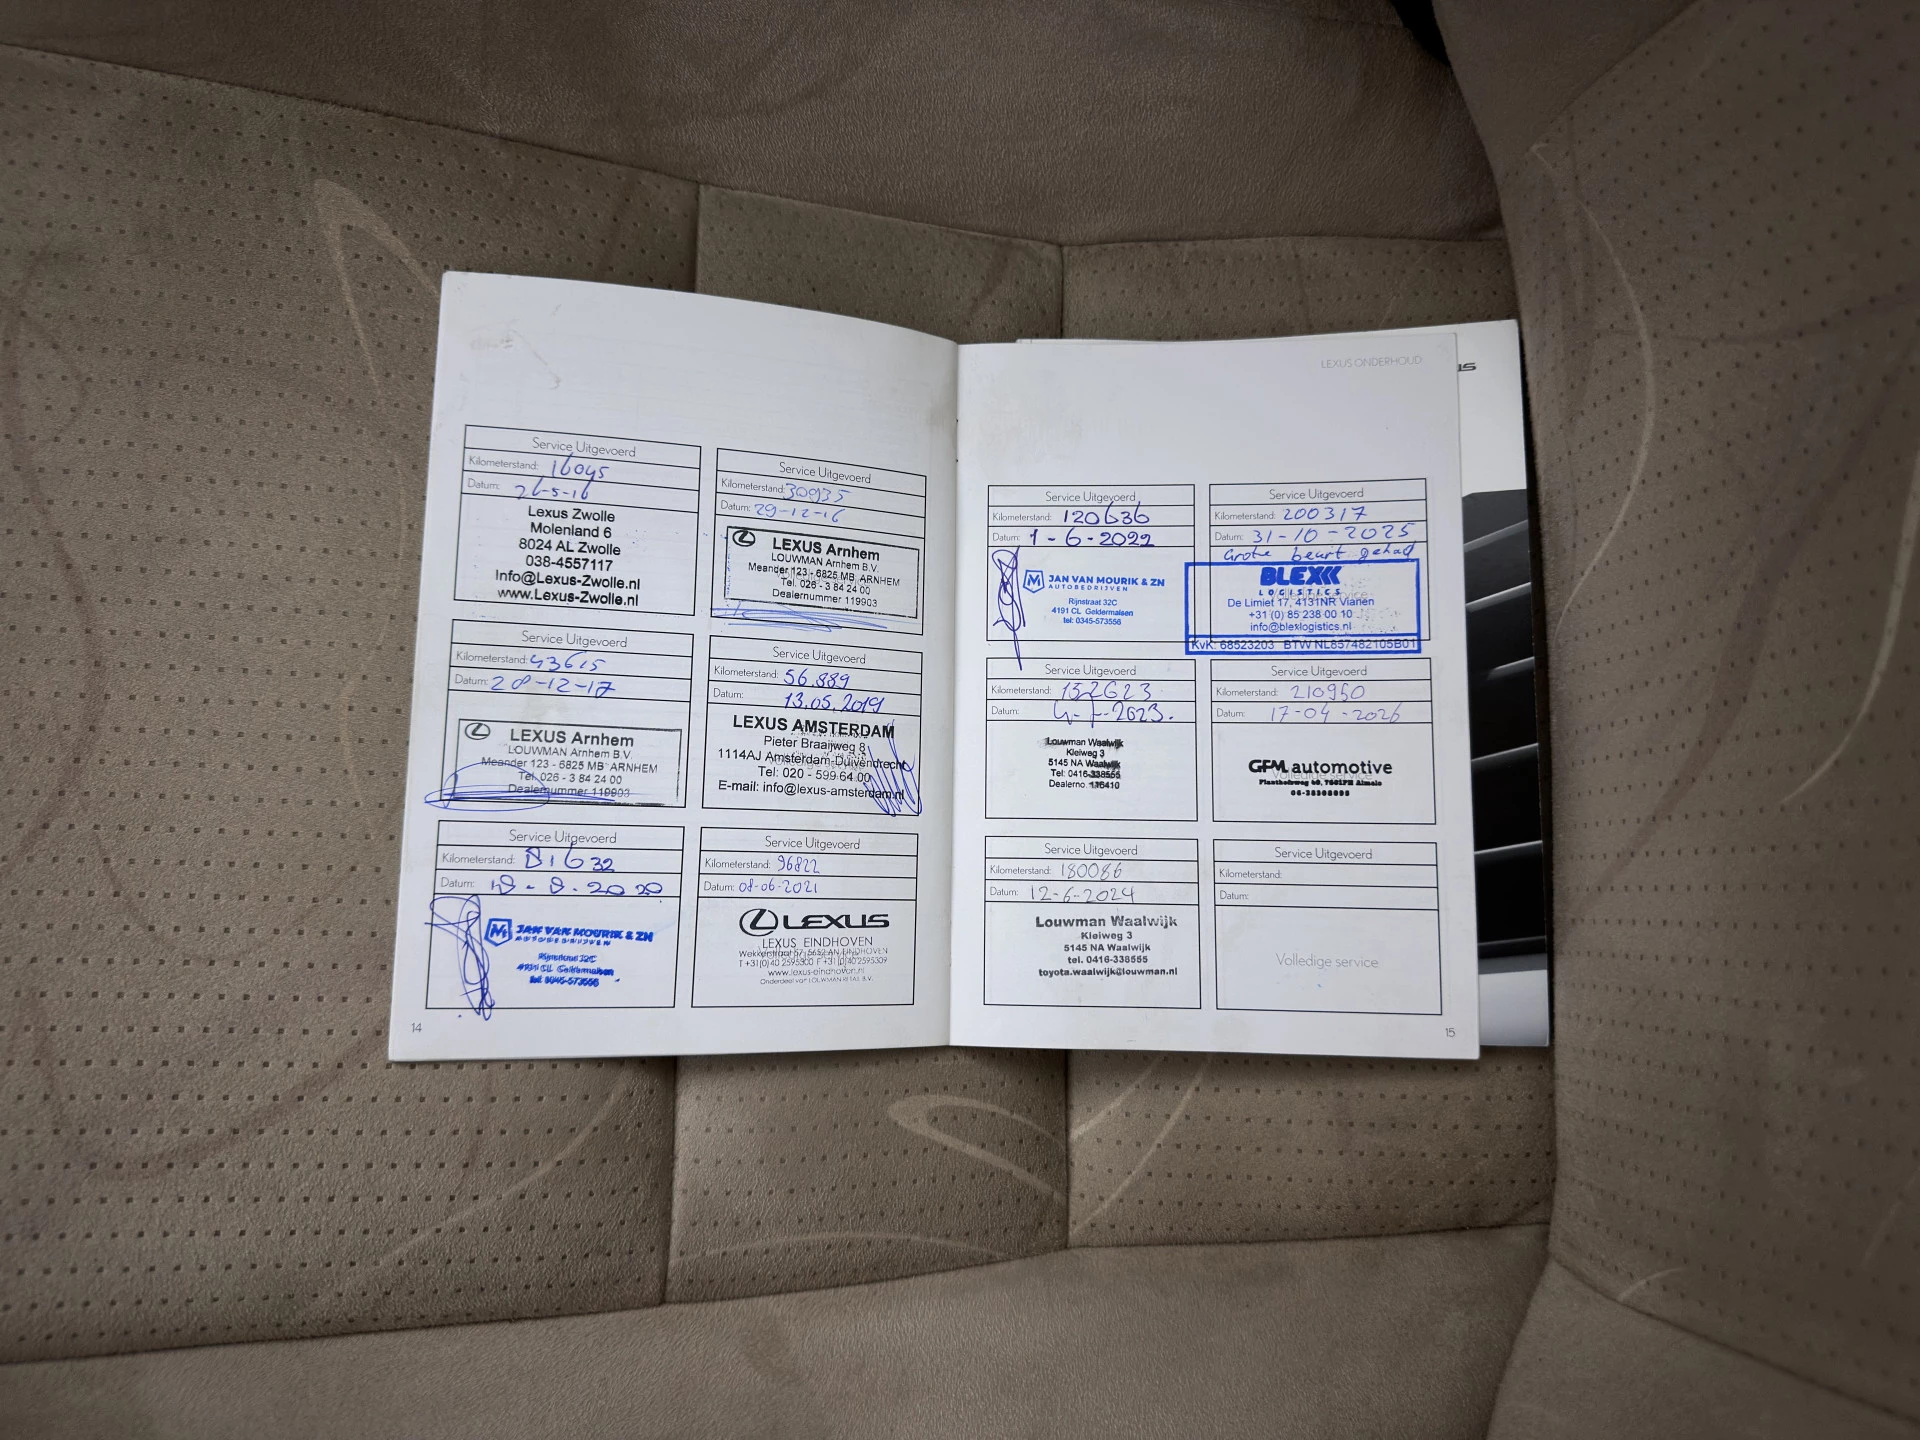 Service Uitgevoerd
Kilometerstand: 16045
Datum: 26-5-16
Lexus Zwolle
Molenland 6
8024 AL Zwolle
038-4557117
Info@Lexus-Zwolle.nl
www.Lexus-Zwolle.nl
Service Uitgevoerd
Kilometerstand: 30935
Datum: 29-12-16
LEXUS Arnhem
LOUWMAN Arnhem B.V.
Meander 123 - 6825 MB ARNHEM
Tel. 026 - 3 84 24 00
Dealernummer 119903
Service Uitgevoerd
Kilometerstand: 43615
Datum: 28-12-17
LEXUS Arnhem
LOUWMAN Arnhem B.V.
Meander 123 - 6825 MB ARNHEM
Tel. 026 - 3 84 24 00
Dealernummer 119903
Service Uitgevoerd
Kilometerstand: 56.889
Datum: 13.05.2019
LEXUS AMSTERDAM
Pieter Braaijweg 8
1114AJ Amsterdam-Duivendrecht
Tel: 020 - 599 64 00
E-mail: info@lexus-amsterdam.nl
Service Uitgevoerd
Kilometerstand: 81632
Datum: 18-8-2020
JAN VAN MOURIK & ZN
AUTOBEDRIJVEN
Rijnstraat 32C
4191 CL Geldermalsen
tel: 0345-573556
Service Uitgevoerd
Kilometerstand: 96822
Datum: 08-06-2021
LEXUS
LEXUS EINDHOVEN
T +31(0)40 2595300 F +31(0)40 2595309
www.lexus-eindhoven.nl
Onderdeel van LOUWMAN RETAIL B.V.
14
LEXUS ONDERHOUD
Service Uitgevoerd
Kilometerstand: 120636
Datum: 1-6-2022
JAN VAN MOURIK & ZN
AUTOBEDRIJVEN
Rijnstraat 32C
4191 CL Geldermalsen
tel: 0345-573556
Service Uitgevoerd
Kilometerstand: 200317
Datum: 31-10-2025
Grote beurt gehad
BLEX
LOGISTICS
De Limiet 17, 4131NR Vianen
+31 (0) 85 238 00 10
info@blexlogistics.nl
KvK: 68523203 BTW NL857482105B01
Service Uitgevoerd
Kilometerstand: 152623
Datum: 4-7-2023.
Louwman Waalwijk
Kleiweg 3
5145 NA Waalwijk
Tel: 0416-338555
Dealerno. 116410
Service Uitgevoerd
Kilometerstand: 210950
Datum: 17-04-2026
GFM automotive
Volledige service
Service Uitgevoerd
Kilometerstand: 180086
Datum: 12-6-2024
Louwman Waalwijk
Kleiweg 3
5145 NA Waalwijk
tel. 0416-338555
toyota.waalwijk@louwman.nl
Service Uitgevoerd
Kilometerstand:
Datum:
Volledige service
15